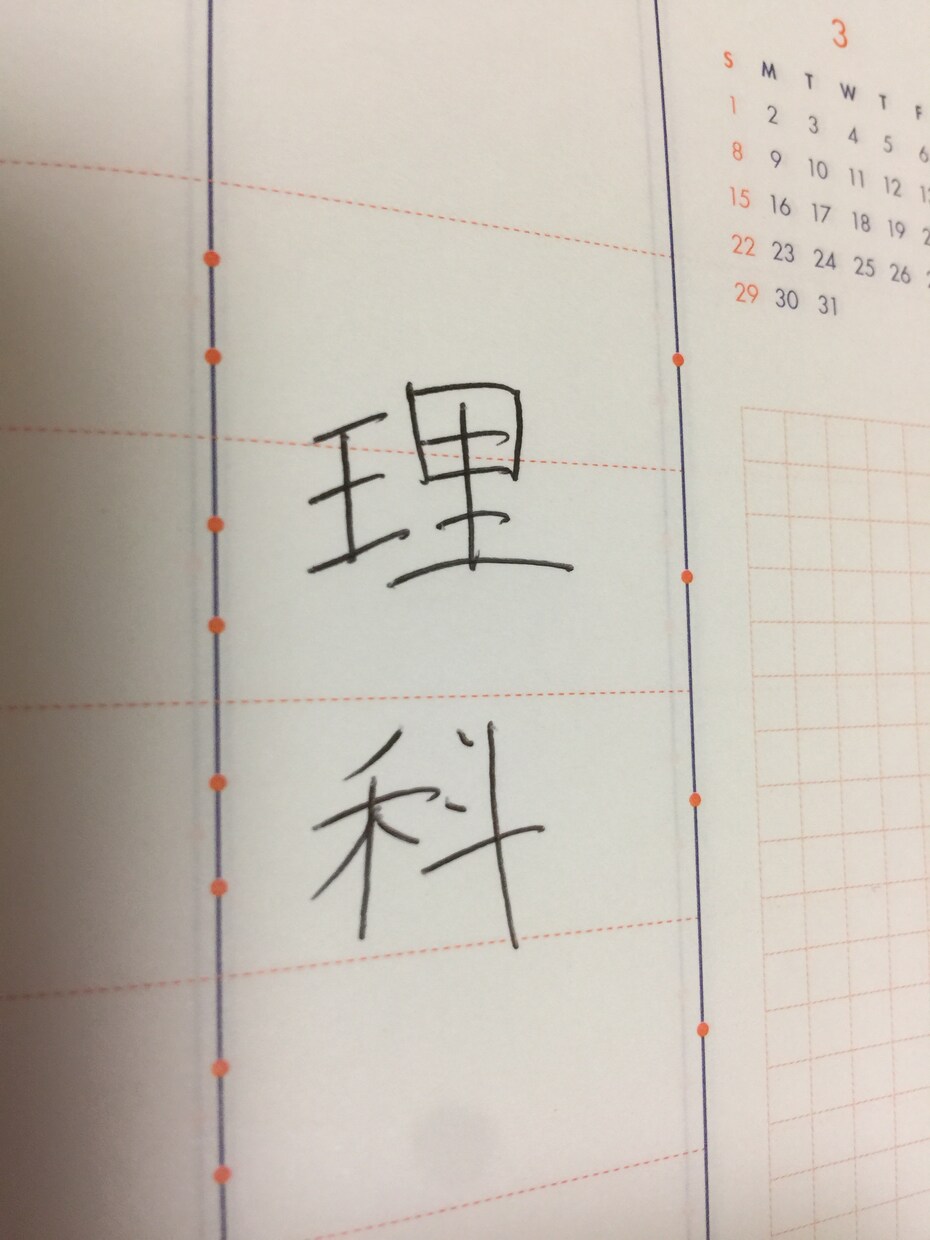 理科
3
S M T W T F
1 2 3 4 5 6
8 9 10 11 12
15 16 17 18 19
22 23 24 25 26
29 30 31